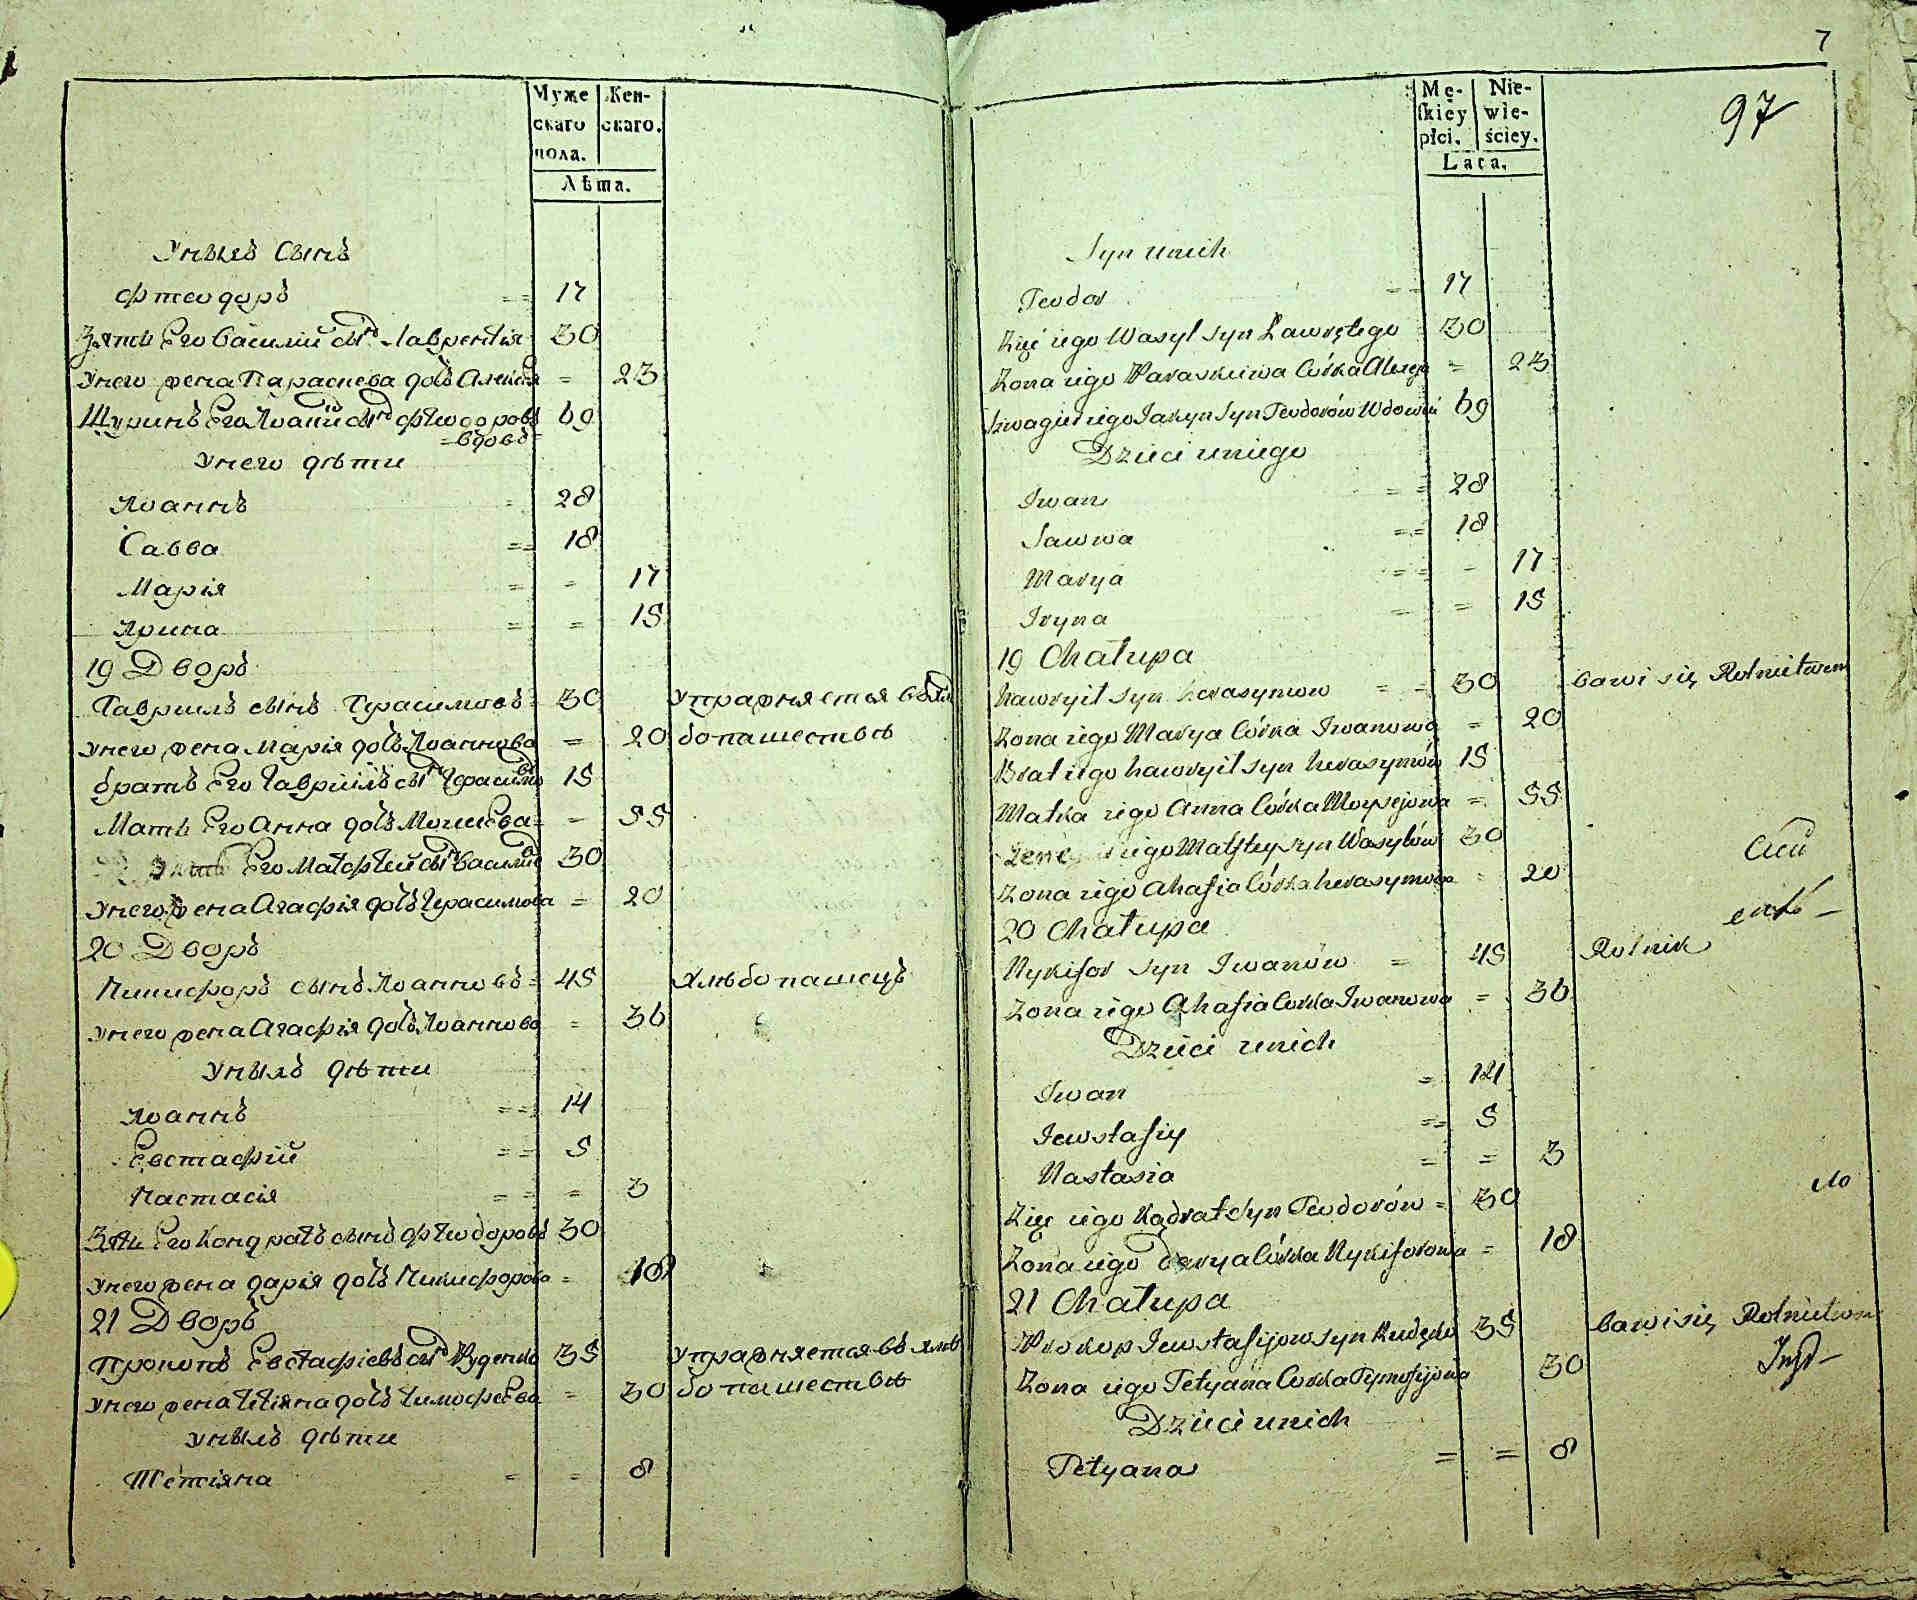 Муже Жен-
скаго скаго.
пола.
Лѣта.
Унихъ сынъ
Фтеодоръ == 17
Зять Его Василий сынъ Лаврентія 30
Унего жена Параскева дочъ Алексія = 23
Щуринъ Его Иоаній сынъ Фтеодоровъ 69
вдовъ
Унего дѣти
Иоаннъ = 28
Савва == 18
Марія = = 17
Ирина = = 15
19 Дворъ
Гавриилъ сынъ Герасимовъ = 30 упражняется въ хлѣ
Унего жена Марія дочъ Иоаннова = 20 бопашествѣ
братъ Его Гавриилъ сынъ Герасимовъ 15
Мать Его Анна дочъ Моисеева = = 55
Его Матфтей сынъ Василіевъ 30
Унего жена Агафія дочъ Герасимова = 20
20 Дворъ
Никифоръ сынъ Иоанновъ = 45 Хлѣбопашецъ
Унего жена Агафія дочъ Иоаннова = 36
Унихъ дѣти
Иоаннъ == 14
Евстафій == 5
Настасія = = = 3
Зять Его Кондратъ сынъ Фтеодоровъ 30
Унего жена дарія дочъ Никифорова = 18
21 Дворъ
Прокопъ Евстафіевъ сынъ 35 упражняется въ хлѣ
Унего жена Тетіяна дочъ Тимофеева = 30 бопашествѣ
Унихъ дѣти
Тетіяна = = 8
7
97
Mę- Nie-
ſkiey wie-
płci. ściey.
Lata.
Syn unich
Teodor == 17
Zięć iego Wasyl syn Ławrętego 30
Zona iego Paraskiewa Córka Alexego = 23
Szwagier iego Iakyn Syn Teodorów Wdowiec 69
Dzieci uniego
Iwan == 28
Sawwa == 18
Marya == - 17
Iryna = = 15
19 Chałupa
Hawryił syn Herasymow = = 30 bawi się Rolnictwem
Zona iego Marya Córka Iwanowa = 20
Brat iego Hawryił syn Herasymów 15
Matka iego Anna Córka Moysejowa = 55
iego Matftey syn Wasylów 30
Zona iego Ahafia Córka Herasymowa = 20
20 Chałupa
Nykifor syn Iwanów = 45 Rolnik
Zona iego Ahafia Corka Iwanowa = 36
Dzieci unich
Iwan = 14
Iewstafiy == 5
Nastasia = = 3
Zięć iego Kądrat syn Teodorów = 30
Zona iego darya Córka Nykiforowa = 18
21 Chałupa
Prokop Iewstafijow syn 35 bawi się Rolnictwem
Zona iego Tetyana Corka Tymofijowa 30
Dzieci unich
Tetyana = = 8